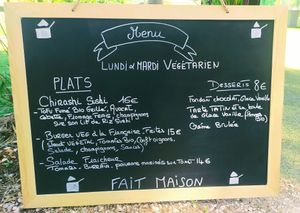 Menu
LUNDI & MARDI VÉGÉTARIEN
PLATS
Chirashi Sushi 16€
- Tofu Fumé Bio Grillé, Avocat,
Fromage Frais, champignons
sur son lit de Riz Sushi
- BURGER VEG à la Française Frites 15€
(Steak VÉGÉTAL, Tomates Bio,
Salade, champignons, Sauce)
- Salade Fraicheur
Tomates - Burrata, poivrons marinés 14€
DESSERTS 8€
Fondant chocolat, Glace Vanille
TARTE TATIN et sa boule
de Glace Vanille
Crème Brulée
FAIT MAISON